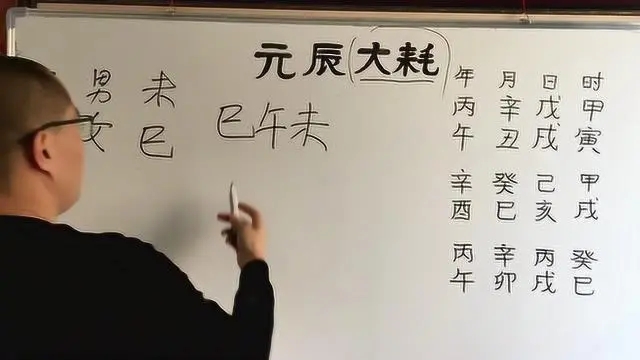 元辰大耗
男 未
女 巳
巳午未
年 月 日 时
丙 辛 戊 甲
午 丑 戌 寅
辛 癸 己 甲
酉 巳 亥 戌
丙 辛 丙 癸
午 卯 戌 巳